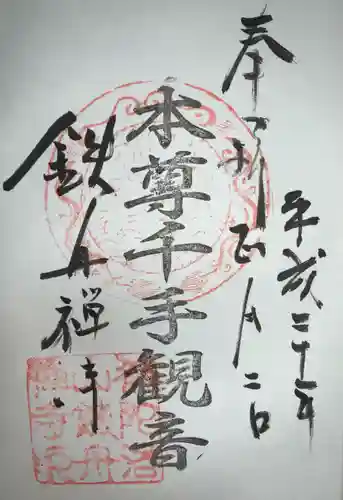 平成二十一年
奉拝 正月二日
本尊千手観音
鉄舟禅寺